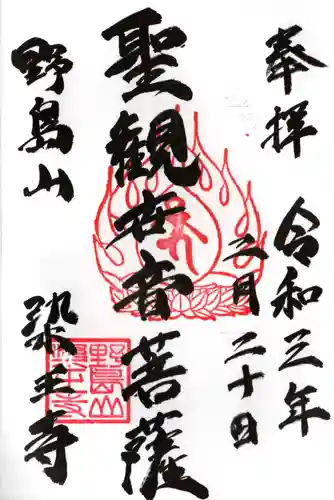 奉拝
令和三年
二月二十日
聖観世音菩薩
野島山
染王寺
野島山